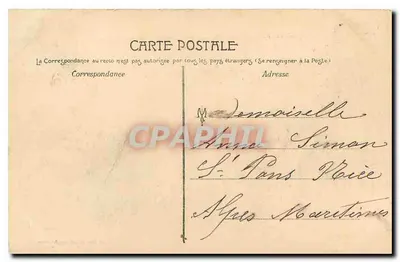 CARTE POSTALE
La Correspondance au recto n'est pas autorisée par tous les pays étrangers (Se renseigner à la Poste)
Correspondance
Adresse
Mademoiselle
Anna Simon
St Pons Nice
Alpes Maritimes
CARTPOSTAL.com